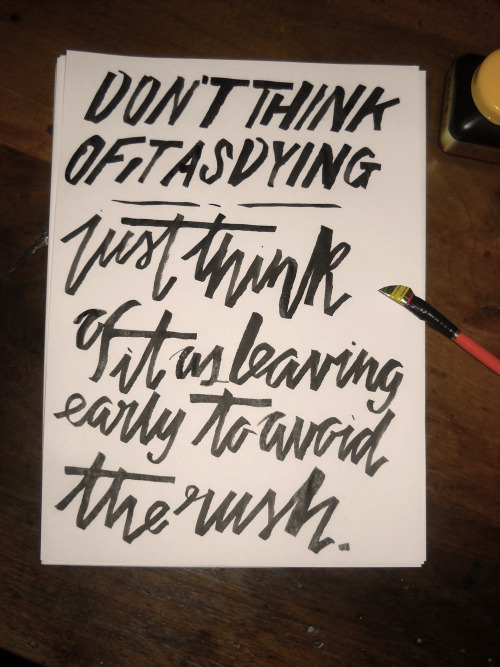 DON'T THINK
OF IT AS DYING
just think
of it as leaving
early to avoid
the rush.